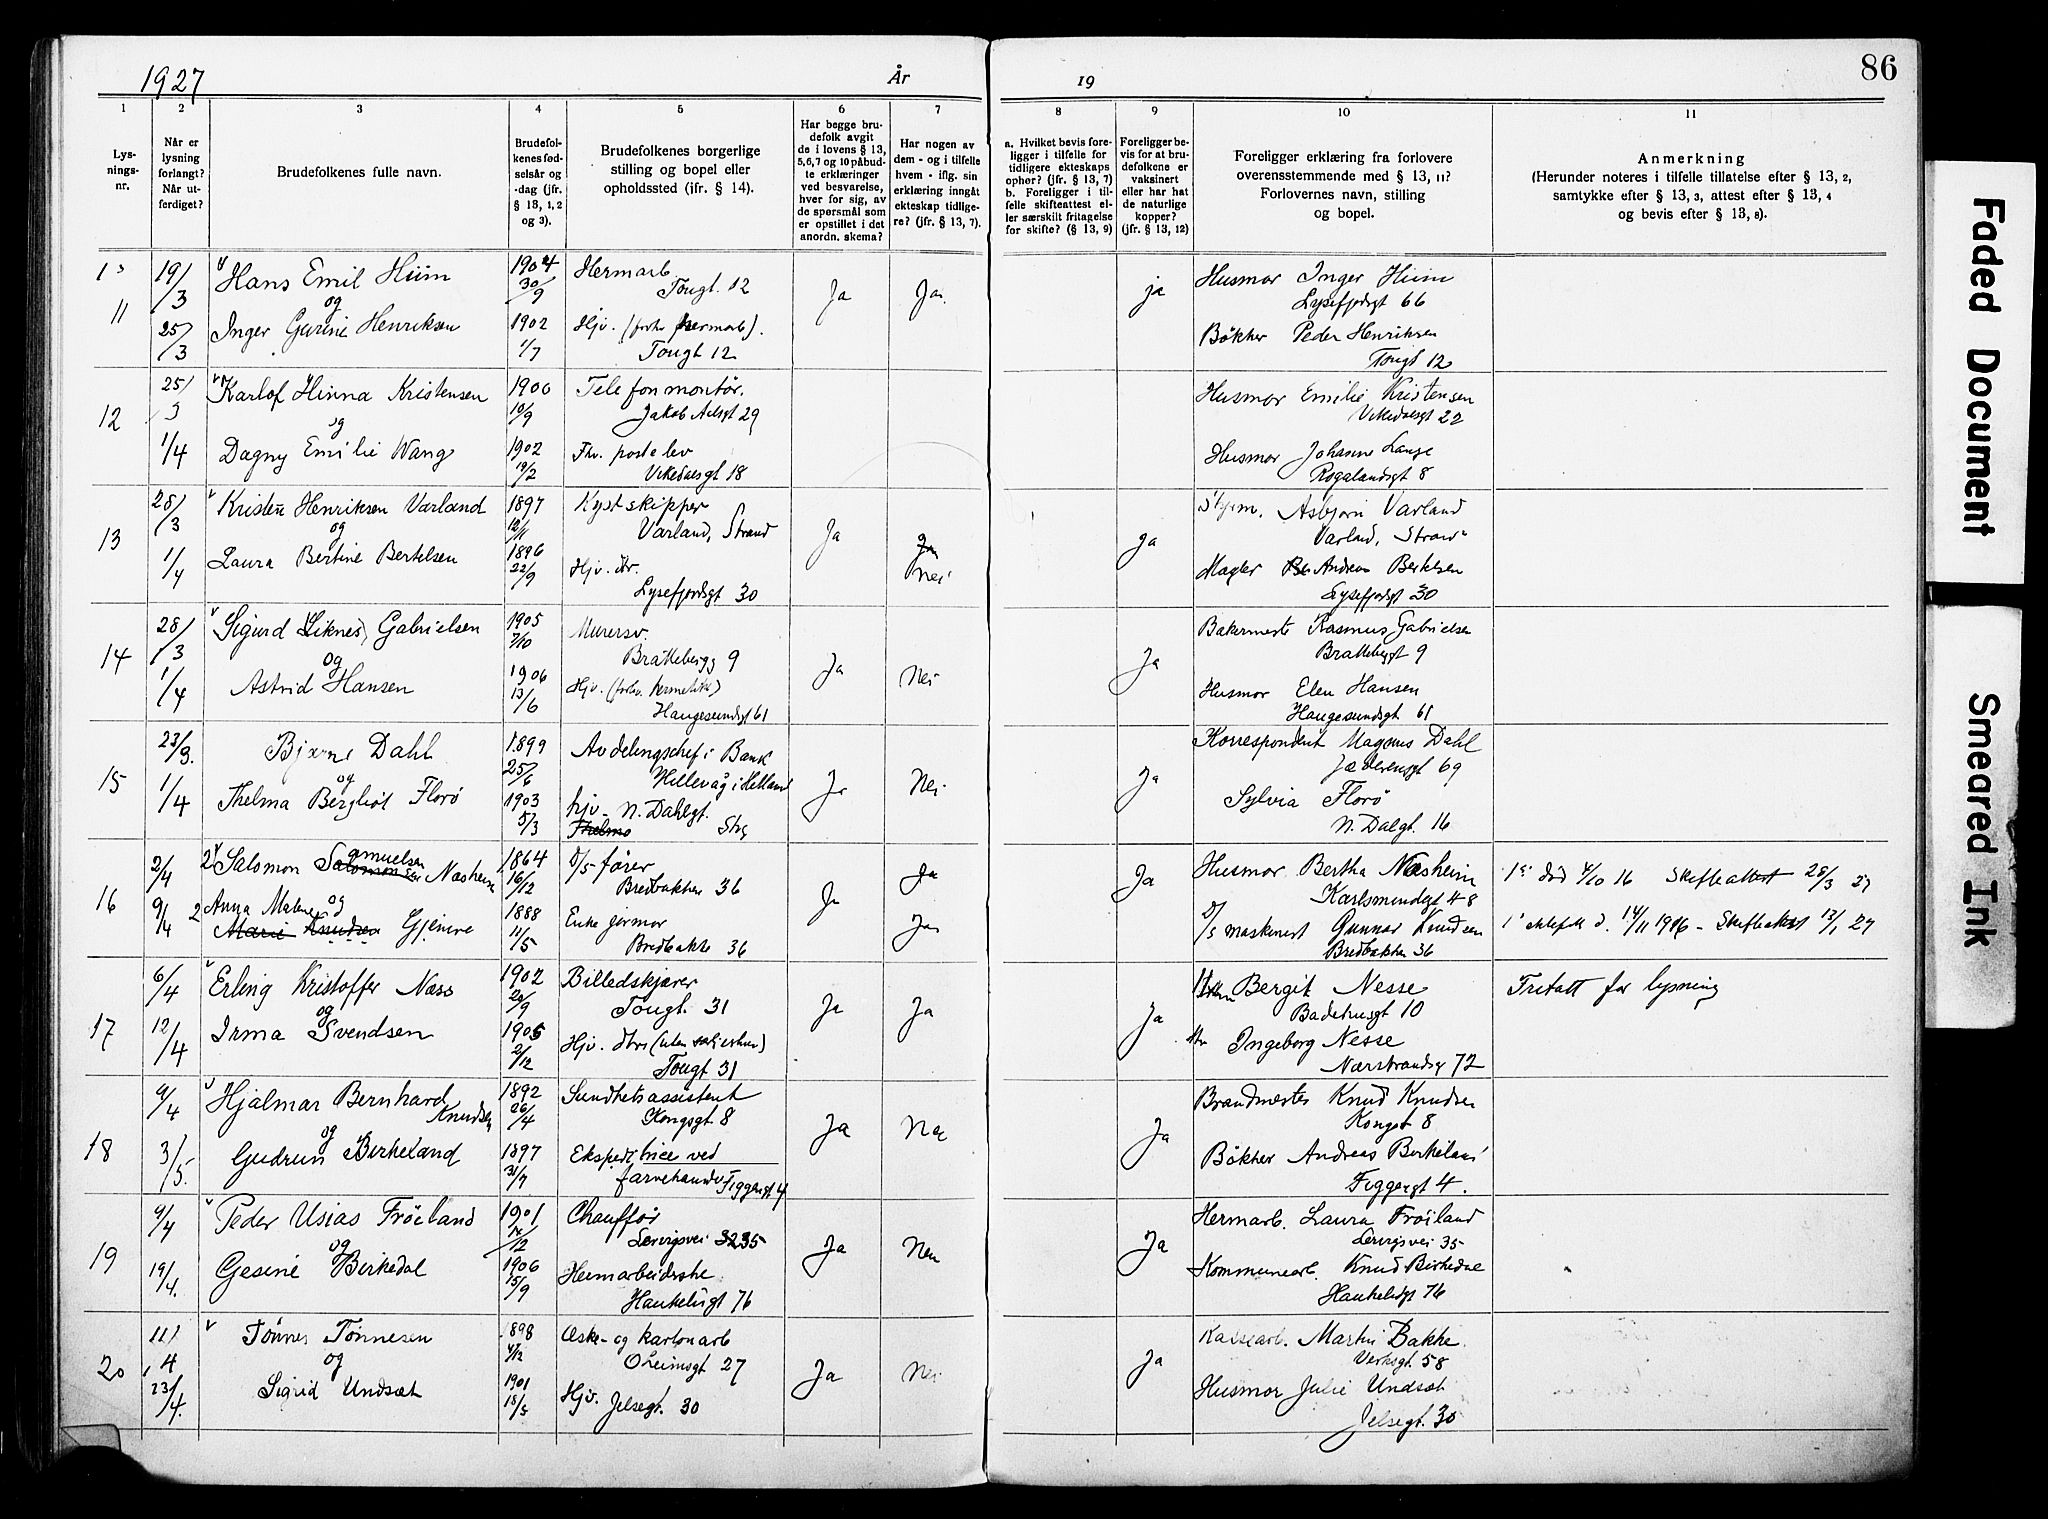 1927
År
19
86
1
2
3
4
5
6
7
8
9
10
11
Lys-
nings-
nr.
Når er
lysning
forlangt?
Når ut-
ferdiget?
Brudefolkenes fulle navn.
Brudefol-
kenes fød-
selsår og
-dag (jfr.
§ 13, 1, 2
og 3).
Brudefolkenes borgerlige
stilling og bopel eller
opholdssted (jfr. § 14).
Har begge bru-
defolk avgit
de i lovens § 13,
5, 6, 7 og 10 påbud-
te erklæringer
ved besvarelse,
hver for sig, av
de spørsmål som
er opstillet i det
anordn. skema?
Har nogen av
dem - og i tilfelle
hvem - iflg. sin
erklæring inngåt
ekteskap tidlige-
re? (jfr. § 13, 7).
a. Hvilket bevis fore-
ligger i tilfelle for
tidligere ekteskaps
ophør? (jfr. § 13, 7)
b. Foreligger i til-
felle skifteattest el-
ler særskilt fritagelse
for skifte? (§ 13, 9)
Foreligger be-
vis for at bru-
defolkene er
vaksinert
eller har hat
de naturlige
kopper?
(jfr. § 13, 12)
Foreligger erklæring fra forlovere
overensstemmende med § 13, 11?
Forlovernes navn, stilling
og bopel.
Anmerkning
(Herunder noteres i tilfelle tillatelse efter § 13, 2,
samtykke efter § 13, 3, attest efter § 13, 4
og bevis efter § 13, 8).
11
19/3
25/3
Hans Emil Hiim
og
Inger Gurine Henriksen
1904
30/9
1902
1/7
Hermarb.
Tougt. 12
Hjv. (forhv hermarb).
Tougt 12
Ja
Ja
ja
Husmor Inger Hiim
Lysefjordsgt 66
Bökker Peder Henriksen
Tougt 12
12
25/3
1/4
Karlof Hinna Kristensen
og
Dagny Emilie Wang
1900
10/9
1902
19/2
Telefonmontör.
Jakob Aalsgt 29
Fhv. postelev
Vikedalsgt 18
Husmor Emilie Kristensen
Vikedalsgt 22
Husmor Johanne Lange
Rogalandsgt 8
13
28/3
1/4
Kristen Henriksen Varland
og
Laura Bertine Bertelsen
1897
12/11
1896
22/9
Kystskipper
Varland, Strand
Hjv. dtr.
Lysefjordsgt 30
Ja
Ja
Nei
Ja
Styrm. Asbjørn Varland
Varland, Strand
Megler Andreas Bertelsen
Lysefjordsgt 30
14
28/3
1/4
Sigurd (Liknes) Gabrielsen
og
Astrid Hansen
1905
7/10
1906
13/6
Murersv.
Brattebergg 9
Hjv. (forhv. hermetikk)
Haugesundsgt 61
Ja
Nei
Ja
Bakermester Rasmus Gabrielsen
Brattebgt 9
Husmor Elen Hansen
Haugesundsgt. 61
15
23/3.
1/4
Bjarne Dahl
og
Thelma Bergliot Florö
1899
25/6
1903
5/3
Avdelingschef i Bank
Hillevåg i Hetland
hjv. N. Dahlgt.
Thelma Stvg
Ja
Nei
Ja
Korrespondent Magnus Dahl
Jæderensgt 69
Sylvia Florö
N. Dalgt. 16
16
2/4
9/4
2 Salomon Samuelsen Næsheim
og
2 Anna Malene
Marie Knudsen Gjeitvre
1864
16/12
1888
11/5
D/S fører
Bredbakken 36
Enke gjormor
Bredbakke 36
Ja
Ja
Ja
Ja
Husmor Bertha Næsheim
Karlsmindegt 48
D/S maskinist Gunnar Knudsen
Bredbakken 36
1s död 4/10 16 Skifteattest 28/3 27
1s ektefelle d. 14/11 1916 - Skifteattest 13/1 27
17
6/4
12/4
Erling Kristoffer Næss
og
Irma Svendsen
1902
20/9
1905
2/12
Billedskjærer
Tougt. 31
Hjv. dtr
Tougt 31
Ja
Ja
Ja
Bergit Nesse
Badehusgt 10
Ingeborg Nesse
Nærstrandsg 72
Fritatt for lysning
18
9/4
3/5.
Hjalmar Bernhard
Knudsen
og
Gudrun Birkeland
1892
26/4
1897
31/7
Sundhetsassistent
Kongsgt. 8
Ekspeditrice ved
farvehandel Figgengt 4
Ja
Nei
Ja
Brandmester Knud Knudsen
Kongst 8
Bökker Andreas Birkeland
Figgengt 4.
19
9/4
19/4.
Peder Usias Fröiland
og
Gesine Birkedal
1901
14/12
1906
15/9
Chauffør
Lervigsvei 35
Hermarbeiderske
Haukeligt 76
Ja
Nei
Ja
Hermarb. Laura Fröiland
Lervigsvei 35
Kommunearb. Knud Birkedal
Haukeligt 76
20
11/4
23/4.
Tönnes Tönnesen
og
Sigrid Undsæt
1898
4/12
1901
18/5
Æske- og kartonarb
Oleimsgt 27
Hjv. Jelsegt. 30
Ja
Nei
Ja
Kassearb. Martin Bakke.
Verksgt. 58
Husmor Julie Undsæt
Jelsegt. 30
Faded Document
Smeared Ink